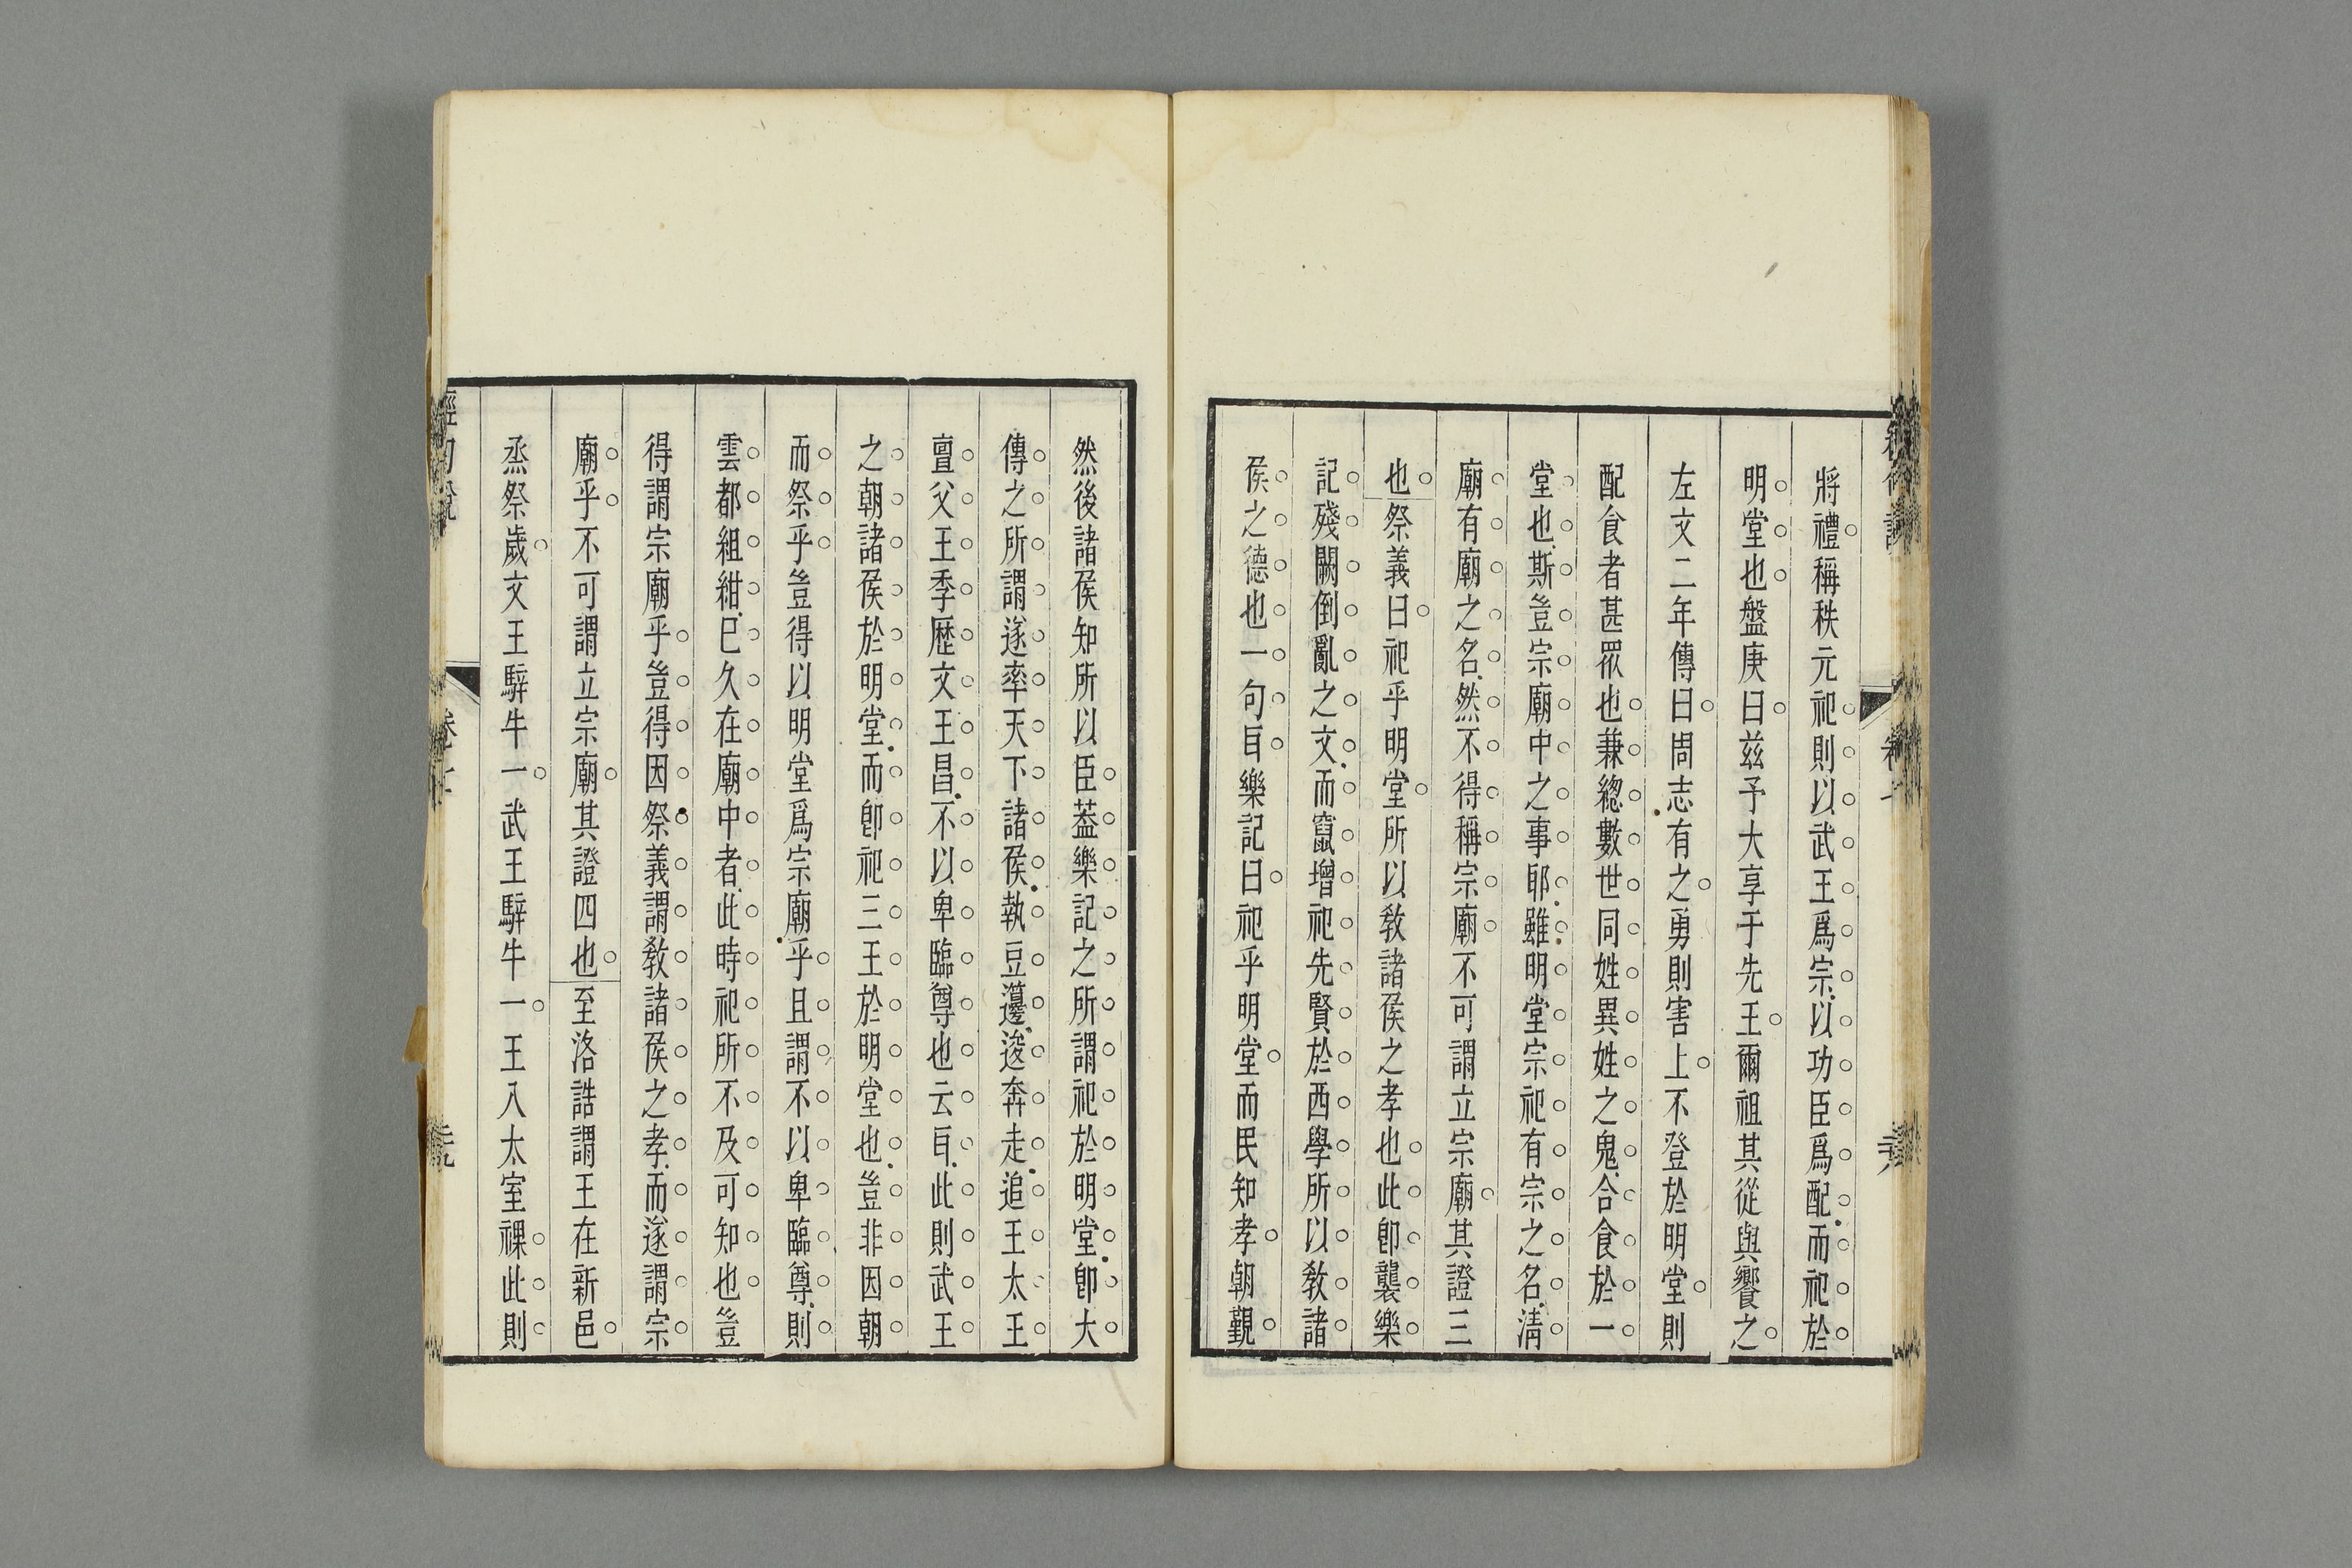 將禮稱秩元祀則以武王爲宗以功臣爲配而祀於
明堂也盤庚曰茲予大享于先王爾祖其從與饗之
左文二年傳曰周志有之勇則害上不登於明堂則
配食者甚眾也兼緫數世同姓異姓之鬼合食於一
堂也斯豈宗廟中之事耶雖明堂宗祀有宗之名淸
廟有廟之名然不得稱宗廟不可謂立宗廟其證三
也祭義曰祀乎明堂所以敎諸侯之孝也此卽襲樂
記殘闕倒亂之文而竄增祀先賢於西學所以敎諸
侯之德也一句耳樂記曰祀乎明堂而民知孝朝覲
然後諸侯知所以臣葢樂記之所謂祀於明堂卽大
傳之所謂遂率天下諸侯執豆籩逡奔走追王太王
亶父王季歷文王昌不以卑臨尊也云耳此則武王
之朝諸侯於明堂而卽祀三王於明堂也豈非因朝
而祭乎豈得以明堂爲宗廟乎且謂不以卑臨尊則
雲都組紺已久在廟中者此時祀所不及可知也豈
得謂宗廟乎豈得因祭義謂敎諸侯之孝而遂謂宗
廟乎不可謂立宗廟其證四也至洛誥謂王在新邑
烝祭歲文王騂牛一武王騂牛一王入太室祼此則
經句說